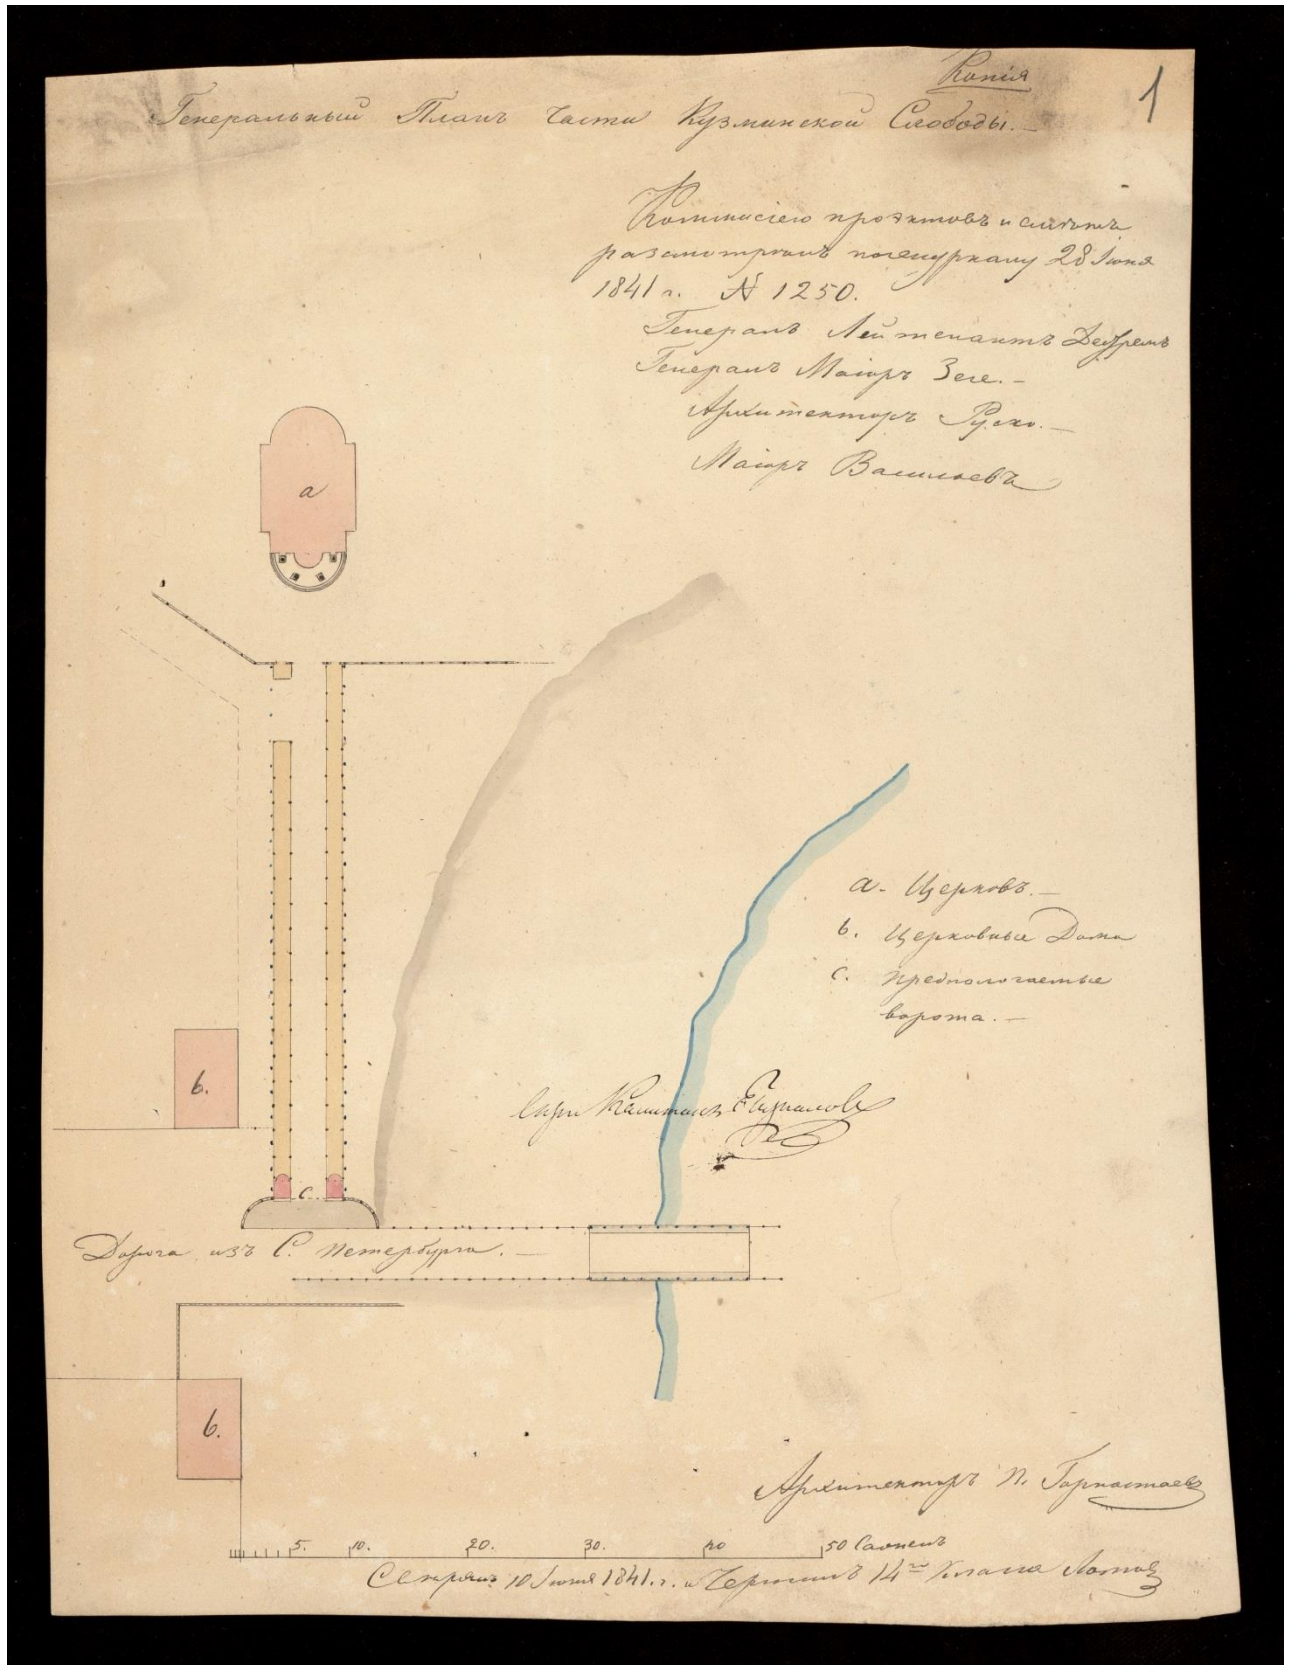 Копія
1
Генеральный Планъ Части Кузминской Слободы.
Коммисіею проэктовъ и смѣтъ
разсмотрѣнъ по журналу 28 Іюня
1841 г. N 1250.
Генералъ Лейтенантъ Дестремъ
Генералъ Маіоръ Зеге.
Архитекторъ Руско.
Маіоръ Васильевъ
a
a. Церковь.
b. Церковные Дома
c. предпологаемые
ворота.
b.
Капитанъ
c.
Дорога изъ С. Петербурга.
b.
Архитекторъ И. Горностаевъ
5. 10. 20. 30. 40 50 Саженъ
10 Іюня 1841. г. и Чертилъ 14го Класса